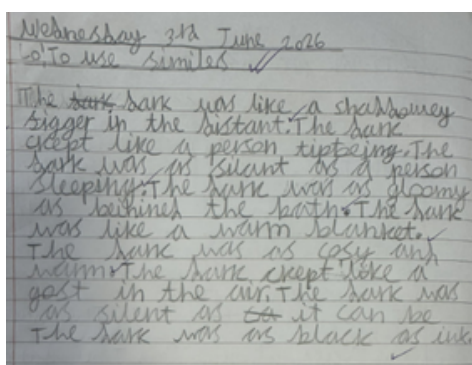 Wednesday 3rd June 2026
LO: To use similes
The dark was like a shaddowey
figger in the distant. The dark
crept like a person tiptoeing. The
dark was as silant as a person
sleeping. The dark was as gloomy
as behined the bath. The dark
was like a warm blanket.
The dark was as cosy and
warm. The dark crept like a
gost in the air. The dark was
as silent as it can be
The dark was as black as ink.